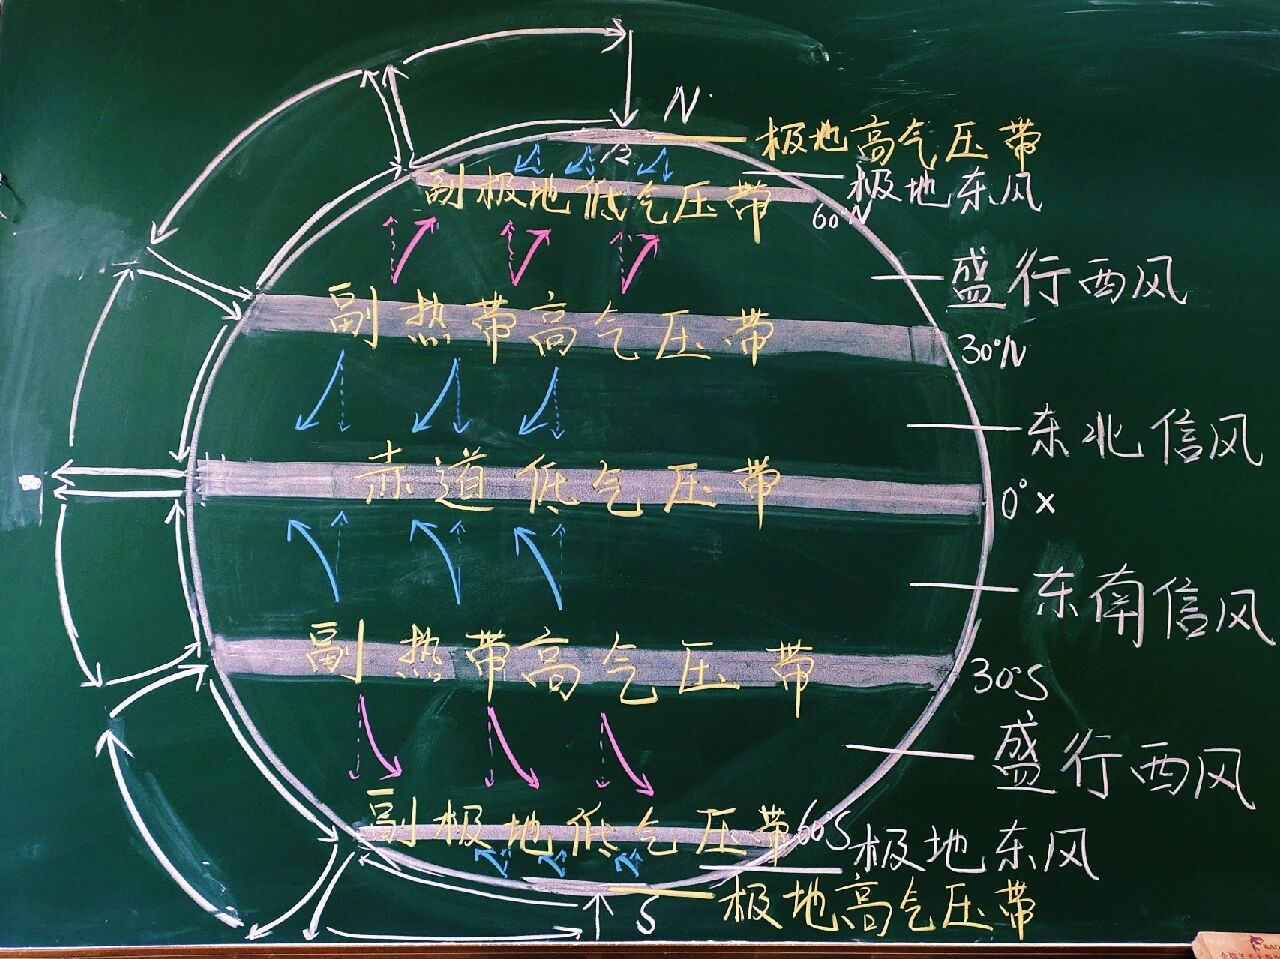 N
极地高气压带
极地东风
副极地低气压带
60°N
盛行西风
副热带高气压带
30°N
东北信风
赤道低气压带
0°
东南信风
副热带高气压带
30°S
盛行西风
副极地低气压带
60°S
极地东风
S
极地高气压带